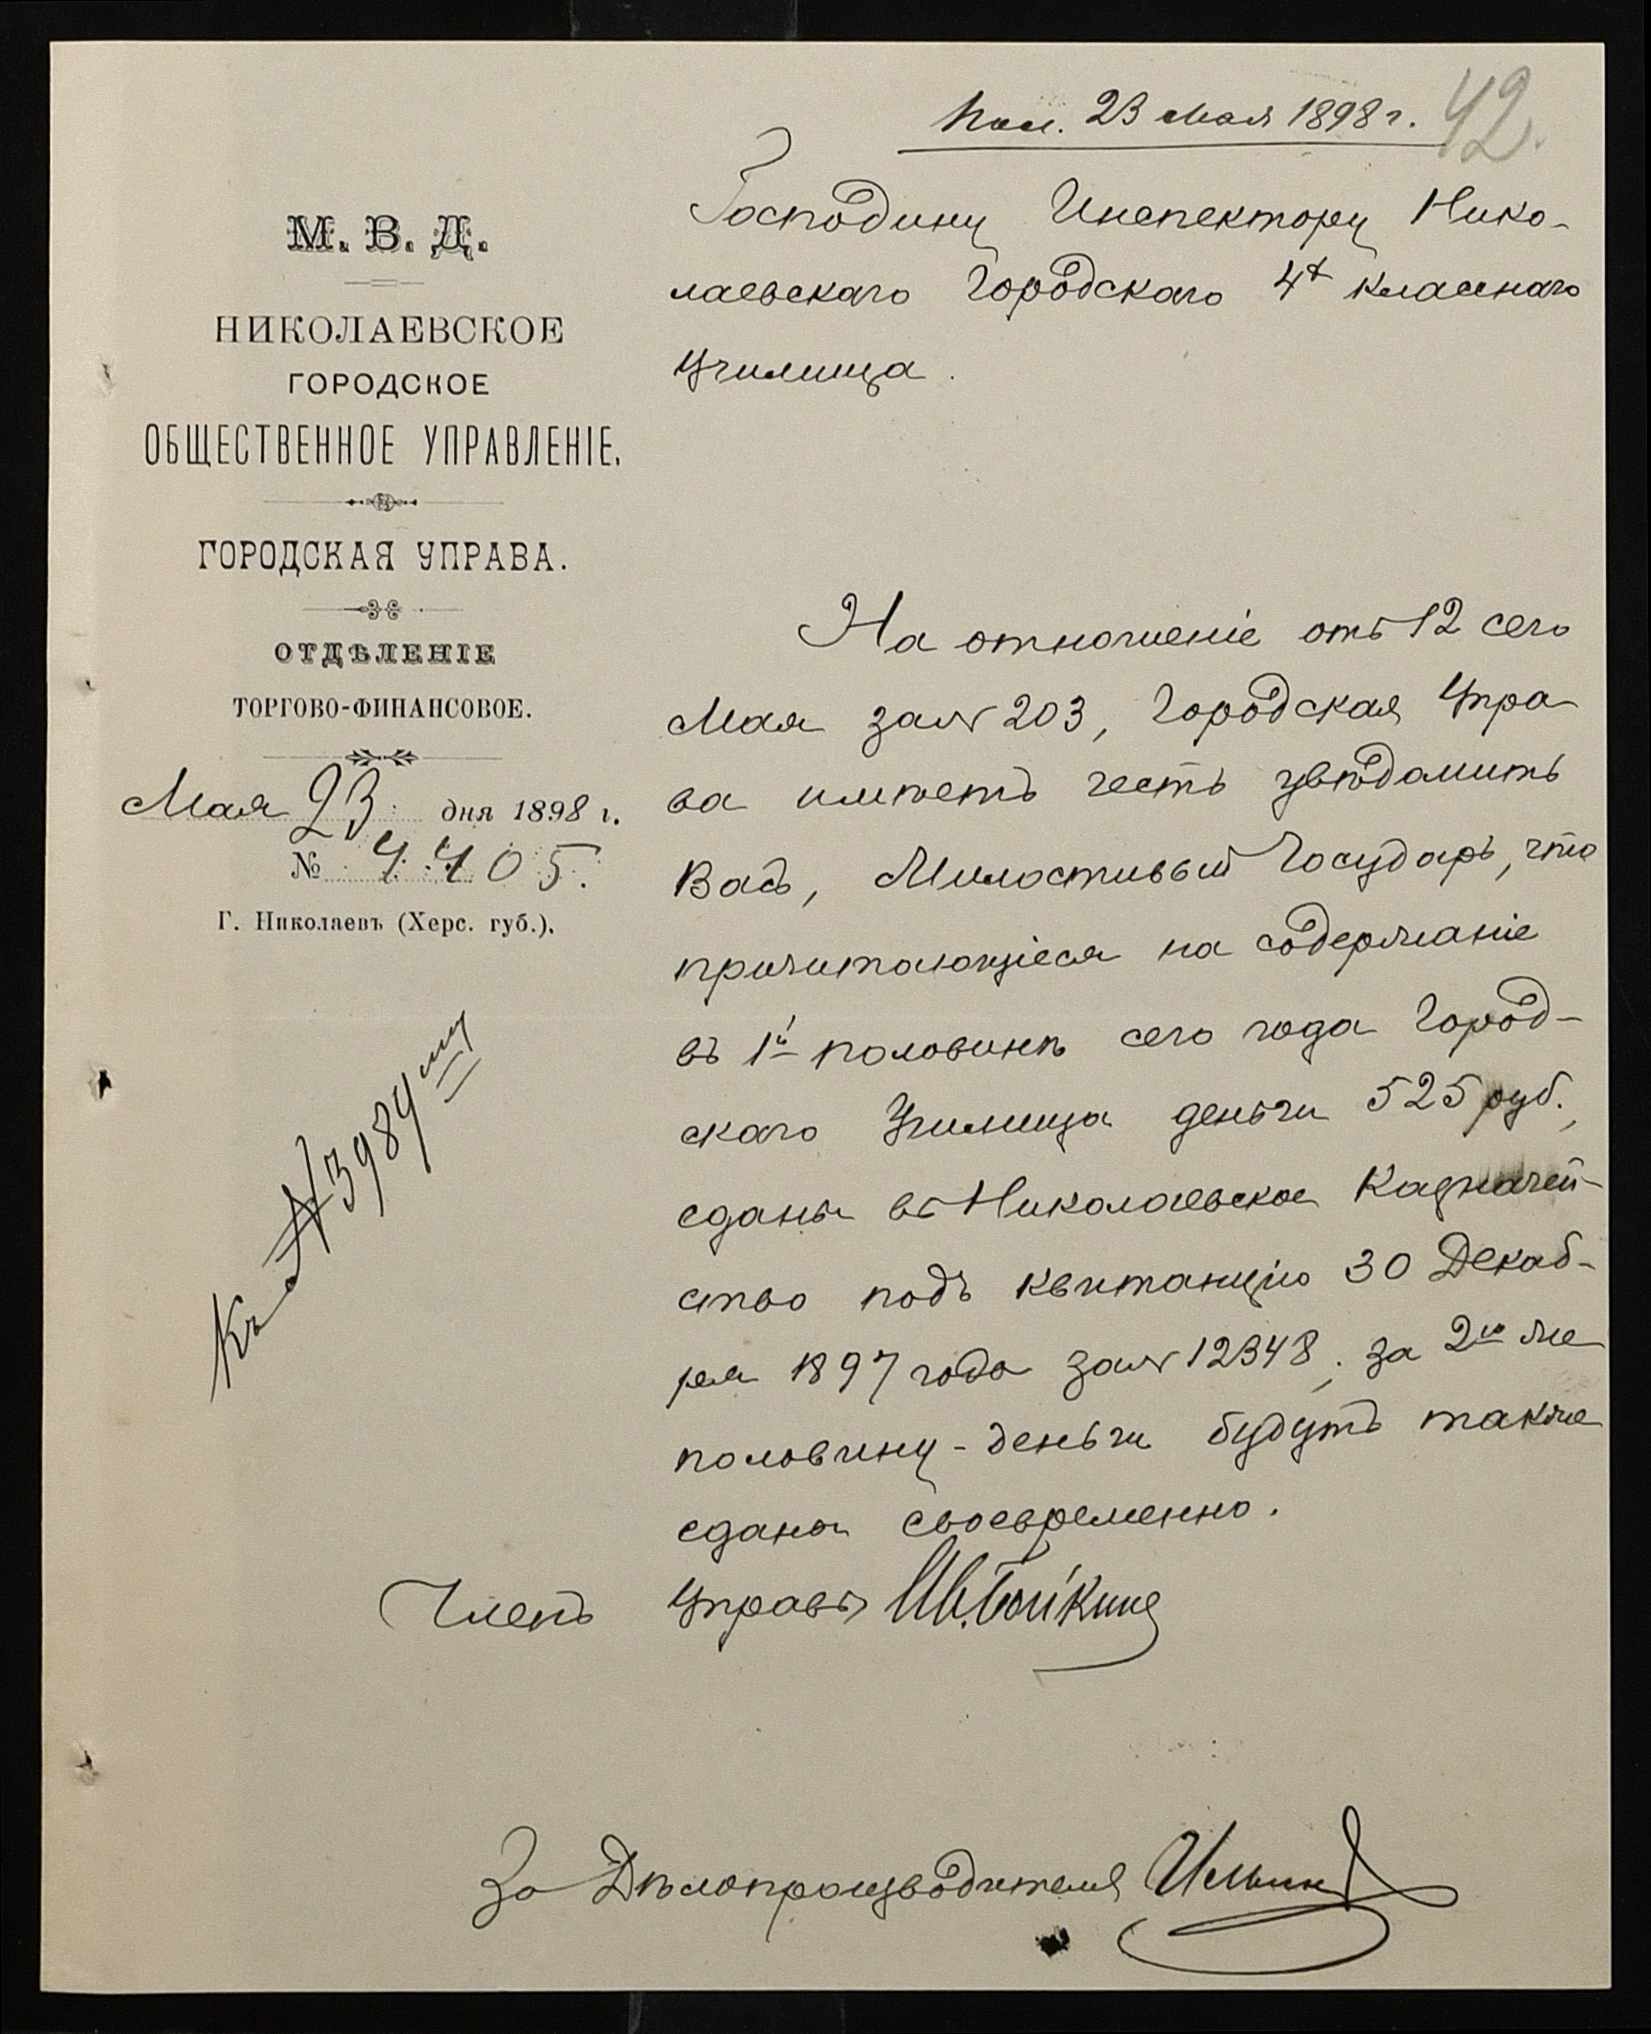 Пол. 23 Мая 1898 г.
42.
М. В. Д.
НИКОЛАЕВСКОЕ
ГОРОДСКОЕ
ОБЩЕСТВЕННОЕ УПРАВЛЕНІЕ.
ГОРОДСКАЯ УПРАВА.
ОТДѢЛЕНІЕ
ТОРГОВО-ФИНАНСОВОЕ.
Мая 23 дня 1898 г.
№ 4405.
Г. Николаевъ (Херс. губ.).
Къ № 3984
Господину Инспектору Нико-
лаевскаго Городского 4х класснаго
Училища.
На отношеніе отъ 12 сего
Мая за № 203, Городская Упра-
ва имѣетъ честь увѣдомить
Васъ, Милостивый Государь, что
причитающіеся на содержаніе
въ 1й половинѣ сего года Город-
скаго Училища деньги 525 руб.,
сданы въ Николаевское Казначей-
ство подъ квитанцію 30 Декаб-
ря 1897 года за № 12348, за 2ю же
половину - деньги будутъ также
сданы своевременно.
Членъ Управы
За Дѣлопроизводителя Ильин